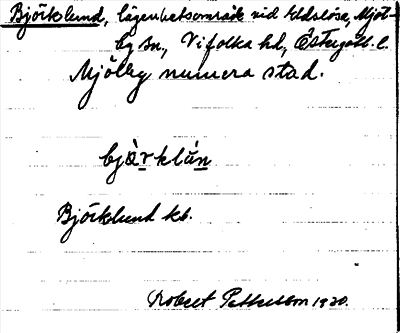 Björklund, lägenhetsområde vid Eldslösa, Mjöl-
by sn, Vifolka hd, Östergötl. l.
Mjölby numera stad.
bjä̀rklún
Björklund kb.
Robert Pettersson 1920.